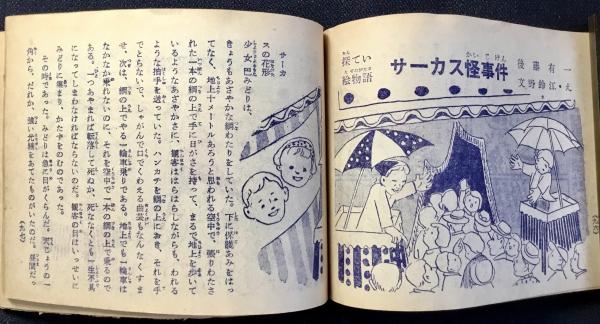 探てい絵物語
サーカス怪事件
後藤有一
文野鈴江・え
サーカ
スの花形
少女巴みどりは、
きょうもあざやかな綱わたりをしていた。下に保護あみをはっ
てなく、地上十メートルあろうと思われる空中で、張りわたさ
れた一本の綱の上で手に日がさを持って、まるで地上を歩いて
いるようなあざやかさに、観客ははらはらしながらも、われる
ような拍手を送っていた。ハンカチを綱の上におき、それを手
でとらないで、しゃがんで口でくわえる曲芸もなんなくすま
せ、次は、綱の上でやる一輪車乗りである。地上でも一輪車は
なかなか乗れないのに、それを空中で一本の綱の上で乗るので
ある。一つあやまれば転落して死ぬか、死ななくとも一生不具
になってしまわなければならないのだ。観客の目はいっせいに
みどりに集まり、かた手をのむのであった。
その時であった。みどりは急に目がくらんだ。天じょうの一
角から、だれか、強い光線をあてたものがいたのだ。昼間だっ